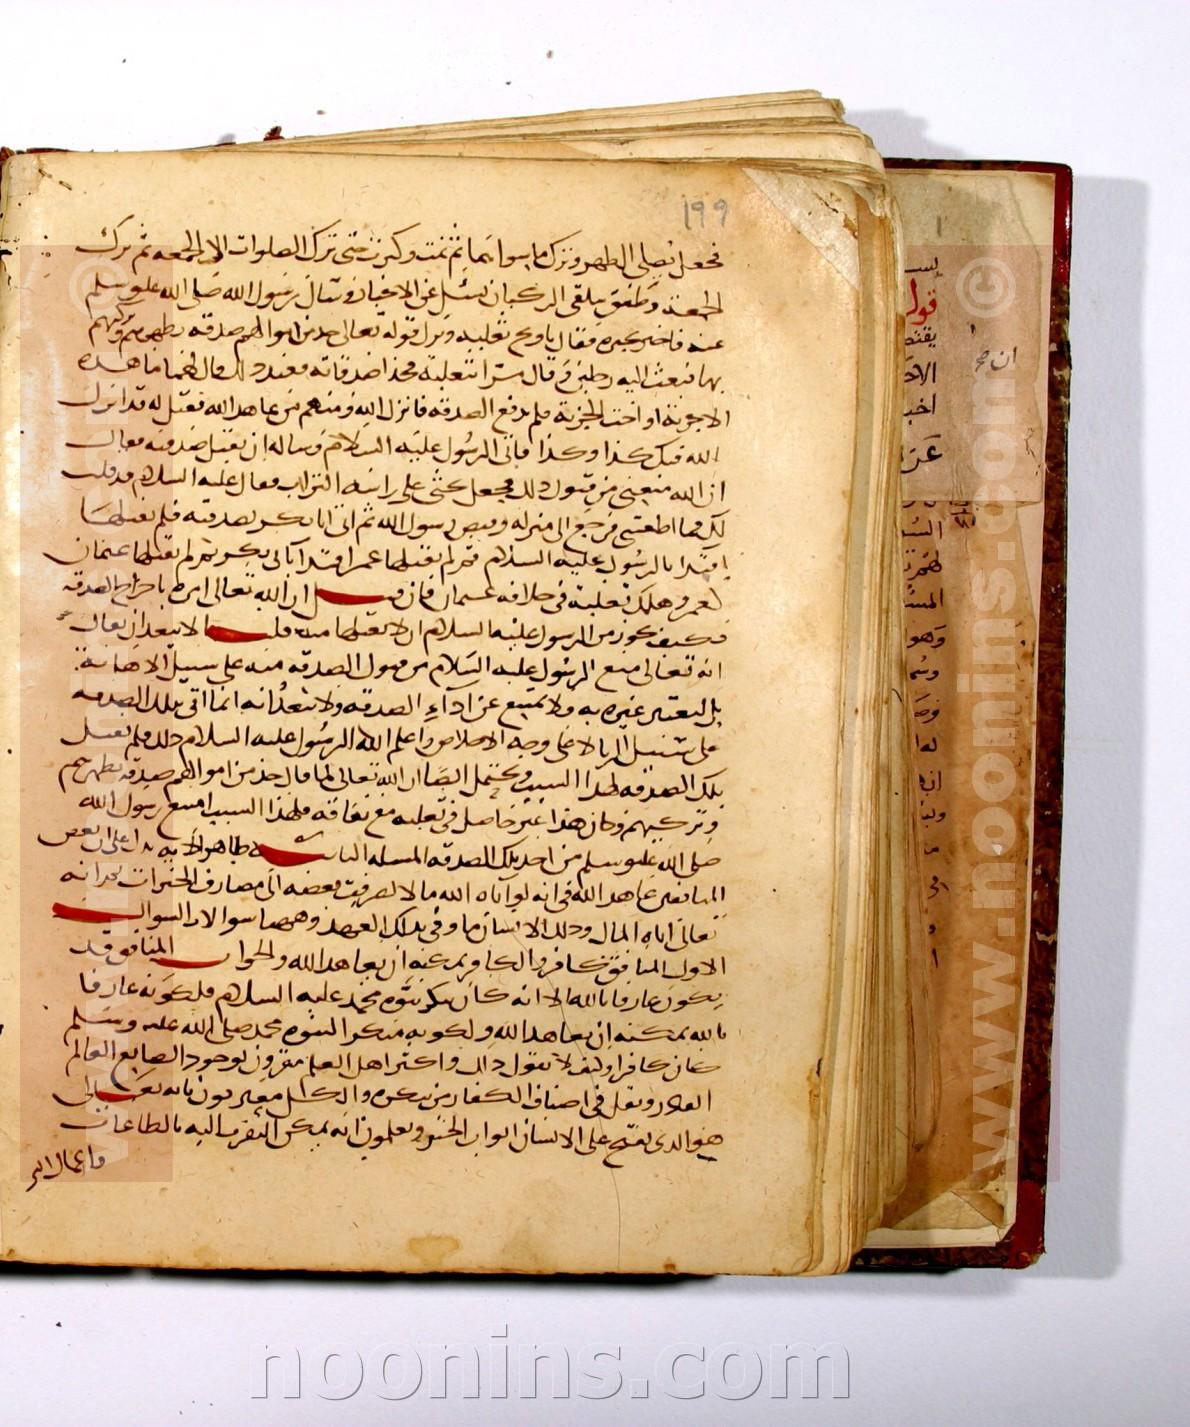 ١٩٩
فجعل يصلي الظهر وترك ما سواهما ثم نمت وكثرت حتى ترك الصلوات الا الجمعه ثم ترك
الجمعة وطفق يلقى الركبان يسئل عن الاخبار وسال رسول الله صلى الله عليه وسلم
عنه فاخبر بخبره فقال يا ويح ثعلبه ونزل قوله تعالى خذ من اموالهم صدقه تطهرهم وتزكيهم
بها فبعث اليه رجلين وقال مرا بثعلبة فخذا صدقاته فعند ذلك قال لهما ما هذه
الا جزية او اخت الجزية فلم يدفع الصدقه فانزل الله ومنهم من عاهد الله فقيل له قد انزل
الله فيك كذا وكذا فاتى الرسول عليه السلام وساله ان يقبل صدقته فقال
ان الله منعني من قبول ذلك فجعل يحثي على راسه التراب فقال عليه السلام قد قلت
لك فما اطعتني فرجع الى منزله وقبض رسول الله ثم اتى ابا بكر بصدقته فلم يقبلها
اقتداء بالرسول عليه السلام ثم لم يقبلها عمر اقتداء بابي بكر ثم لم يقبلها عثمان
وهلك ثعلبة في خلافه عثمان فان قيل ان الله تعالى امره باخراج الصدقه
فكيف يجوز من الرسول عليه السلام ان لا يقبلها منه قلنا لا يبعد ان يقال
انه تعالى منع الرسول عليه السلام من قبول الصدقه منه على سبيل الاهانة
بل ليعتبر غيره به ولا يمتنع عن اداء الصدقه ولا يبعد انه انما اتى بتلك الصدقه
على سبيل الريا لا على وجه الاخلاص واعلم الله الرسول عليه السلام ذلك فلم يقبل
تلك الصدقه لهذا السبب ويحتمل ايضا ان الله تعالى لما قال خذ من اموالهم صدقه تطهرهم
وتزكيهم وكان هذا غير حاصل في ثعلبه مع نفاقه فلهذا السبب امتنع رسول الله
صلى الله عليه وسلم من اخذ تلك الصدقه المسله الثانيه ظاهر الايه يدل على ان بعض
المنافقين عاهد الله في انه لو اتاه الله مالا لصرف بعضه الى مصارف الخيرات ثم انه
تعالى اتاه المال وذلك الانسان ما وفى بذلك العهد وههنا سوالات السوال
الاول المنافق كافر والكافر يمكنه ان يعاهد الله والجواب المنافق قد
يكون عارفا بالله الا انه كان ينكر نبوة محمد عليه السلام فلكونه عارفا
بالله يمكنه ان يعاهد الله ولكونه منكرا لنبوه محمد صلى الله عليه وسلم
كان كافرا وكيف لا نقول ذلك واكثر اهل العلم مقرون بوجود الصانع العالم
القادر ويقل في اصناف الكفار من ينكره والكل معترفون بانه تعالى
هو الذي يفتح على الانسان ابواب الخير ويعلمون انه يمكن التقرب اليه بالطاعات
واعمال البر
قول
الا
اخبا
ان صح
www.noonins.com
noonins.com